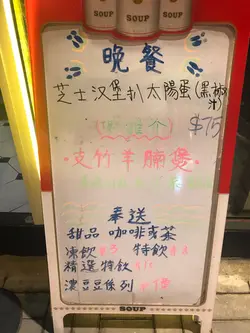 SOUP
晚餐
芝士汉堡扒太陽蛋(黑椒汁)
$75
(好推介)
·支竹羊腩煲·
奉送
甜品 咖啡或茶
凍飲 $3 特飲
精選特飲
濃豆豆係列
SOUP